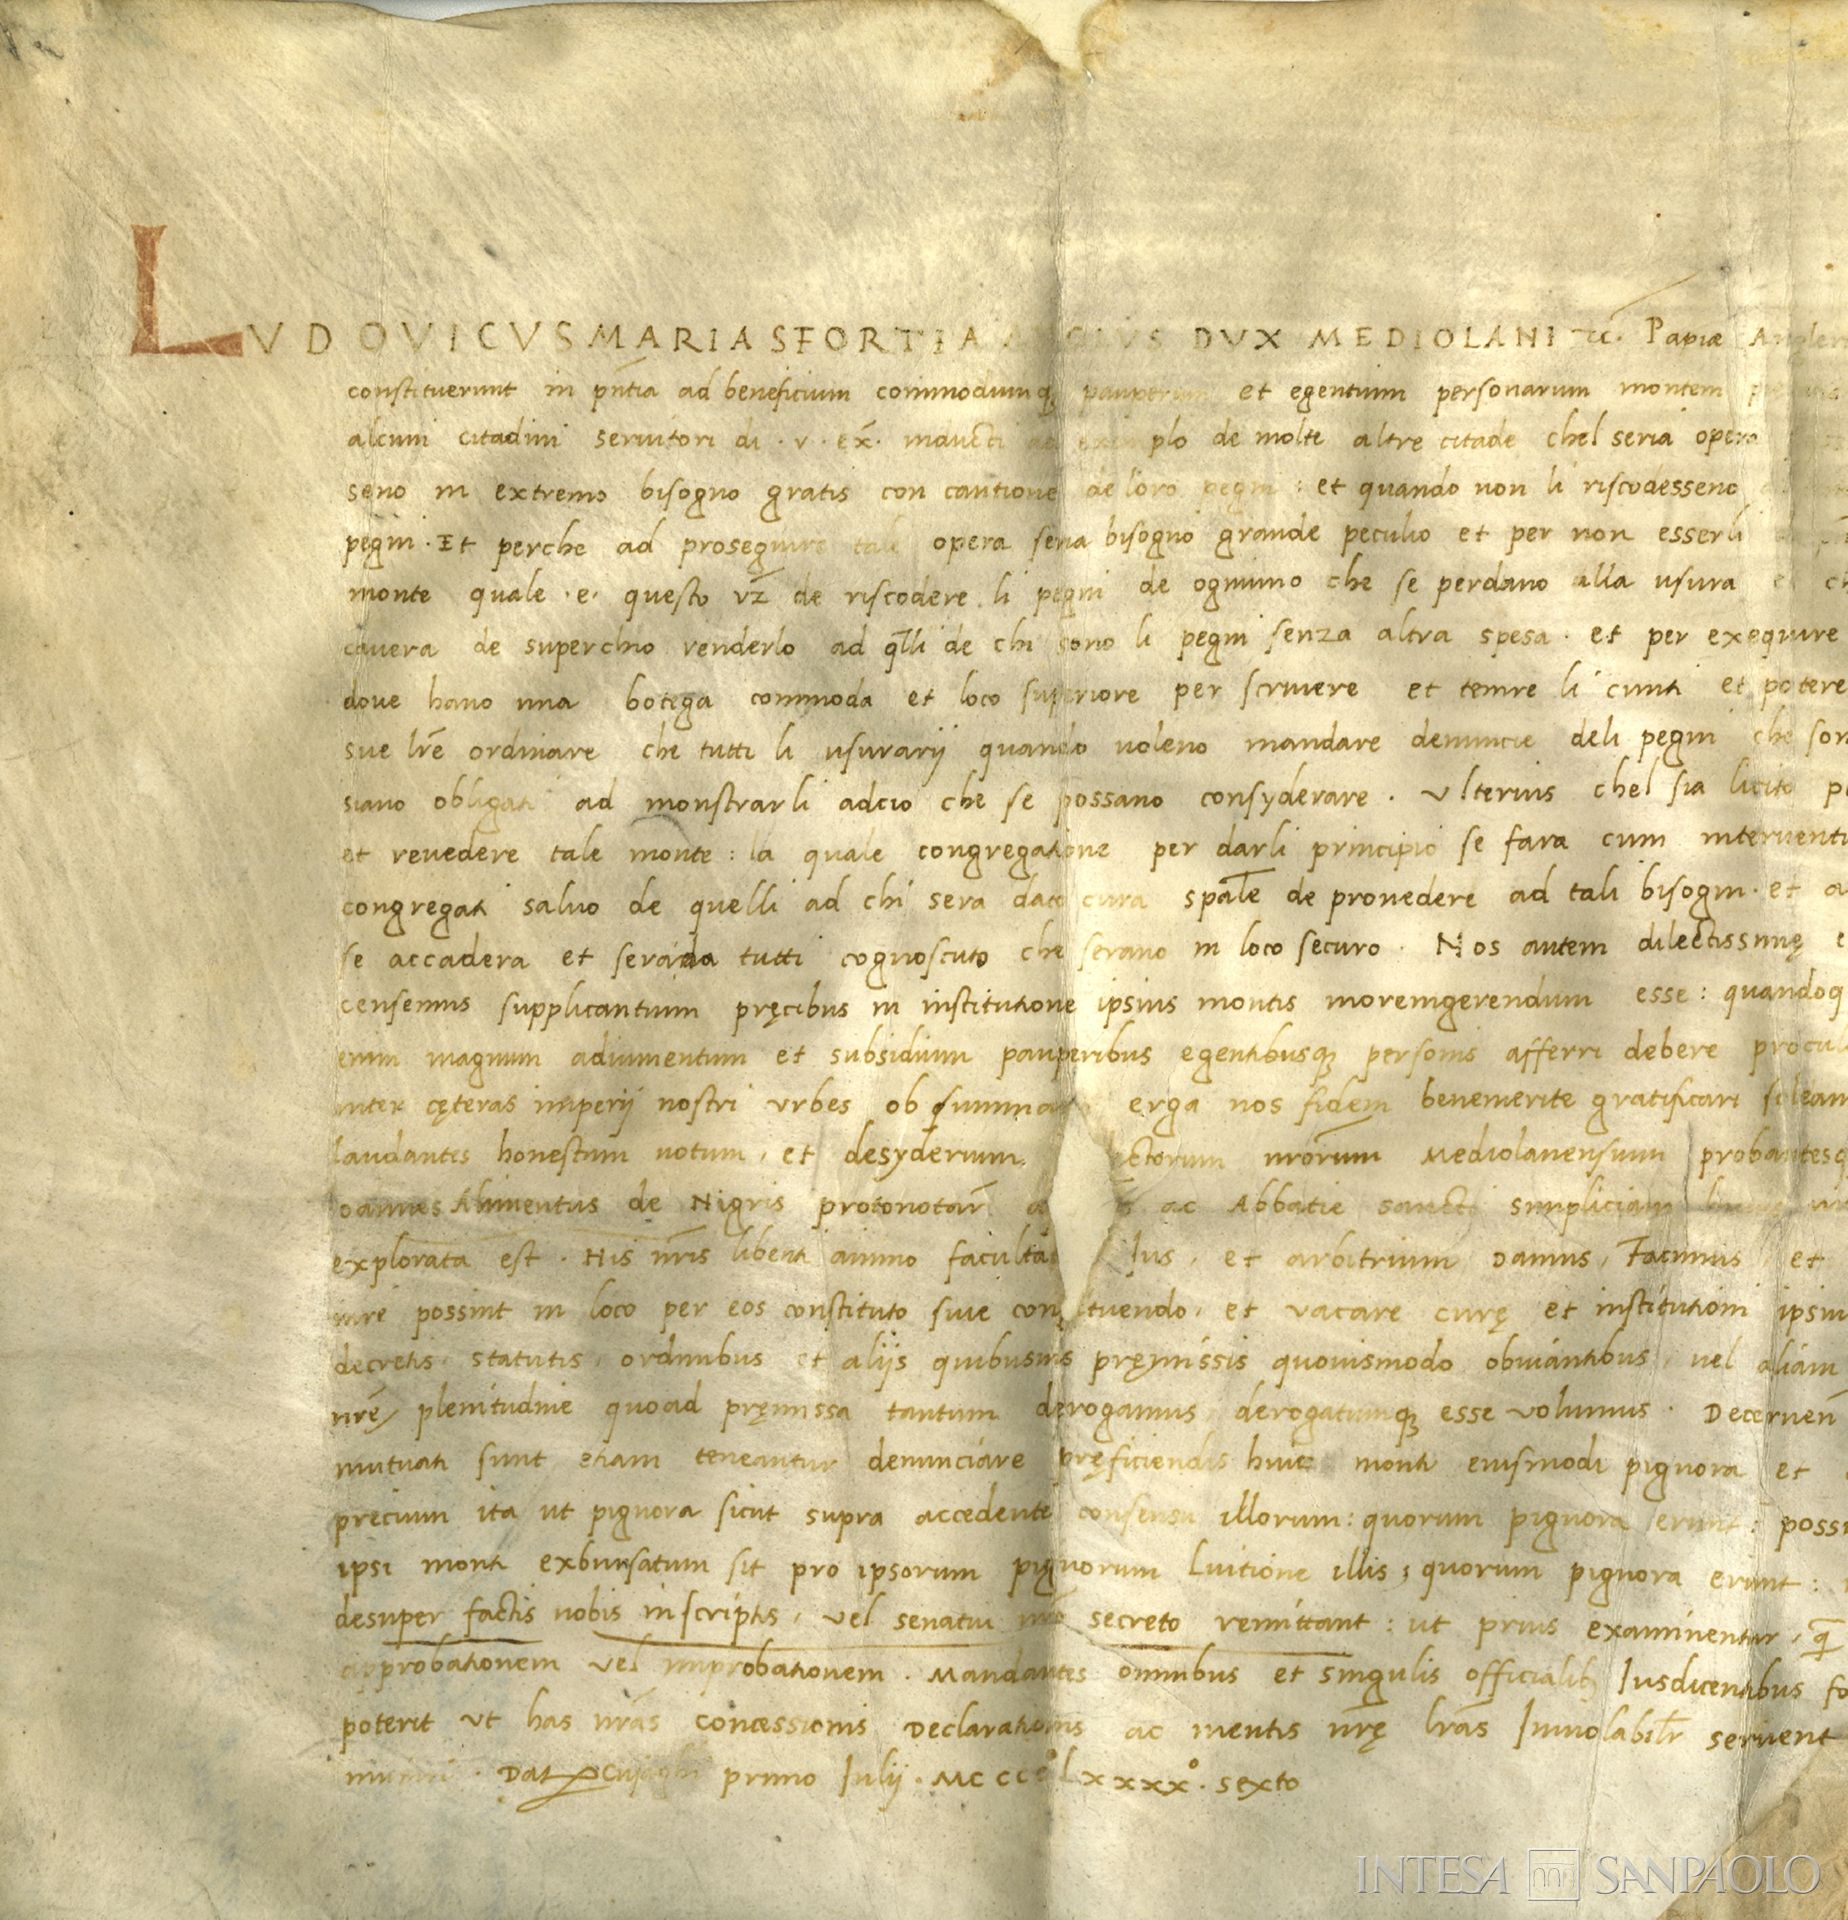 LVDOVICVS MARIA SFORTIA DVX MEDIOLANI &c. Papiæ
constituerunt in pn̄tia ad beneficium commodumq; et egentium personarum montem
alcuni citadini servitori di . v . ex̄. inducti ad exemplo de molte altre citade chel seria opera
seno in extremo bisogno gratis con cautione de loro pegni : et quando non li riscodesseno
pegni . Et perche ad proseguire tale opera seria bisogno grande peculio et per non esserli
monte quale .e. questo vz̄ de riscodere li pegni de ogniuno che se perdano alla usura e
cavera de superchio renderlo ad q̄lli de chi sono li pegni senza altra spesa . et per exequire
dove hano una botega commoda et loco superiore per scrivere et tenire li cunti et potere
sue lr̄e ordinare che tutti li usurarij quando voleno mandare denuncie deli pegni che
siano obligati ad monstrarli adcio che se possano consyderare . Ulterius chel sia licito
et revedere tale monte : la quale congregatione per darli principio se fara cum
congregati salvo de quelli ad chi sera dato cura spāle de provedere ad tali bisogni . et
se accadera et sera tutti cognoscuto che serano in loco securo . Nos autem dilectissimę
censemus supplicantium pręcibus in institutione ipsius montis moremgerendum esse : quandoq
enim magnum adiumentum et subsidium pauperibus egentibusq; personis afferri debere
inter cęteras imperij nostri urbes ob summam erga nos fidem benemerite gratificari
laudantes honestum votum , et desyderium nr̄orum Mediolanensium probantesq
de Nigris protonotar̄ ac Abbatie sancti
explorata est . His nr̄is libenti animo Ius , et arbitrium Damus , Facimus , et
iure possint in loco per eos constituto sive , et vacare curę et institutioni
decretis , statutis , ordinibus et alijs quibusvis pręmissis quovismodo obviantibus , vel aliam
nr̄ę plenitudine quoad pręmissa tantum derogamus derogatumq; esse volumus . Decernen̄
mutuati sunt etiam teneantur denunciare pręficiendis huic monti eiusmodi pignora et
precium ita ut pignora sicut supra accedente consensu illorum : quorum pignora erunt :
ipsi monti exbursatum sit pro ipsorum pignorum Luitione illis ; quorum pignora erunt :
desuper factis nobis inscriptis , vel senatui nr̄o secreto remittant : ut prius examinentur ,
approbationem vel improbationem . Mandantes omnibus et singulis officialib; Iusdicentibus
poterit ut has nr̄as concessionis Declarationis ac mentis nr̄ę lr̄as Inviolabilr̄ servent
Dat primo Iulij . MCCCC°Lxxxx° . sexto
INTESA SANPAOLO